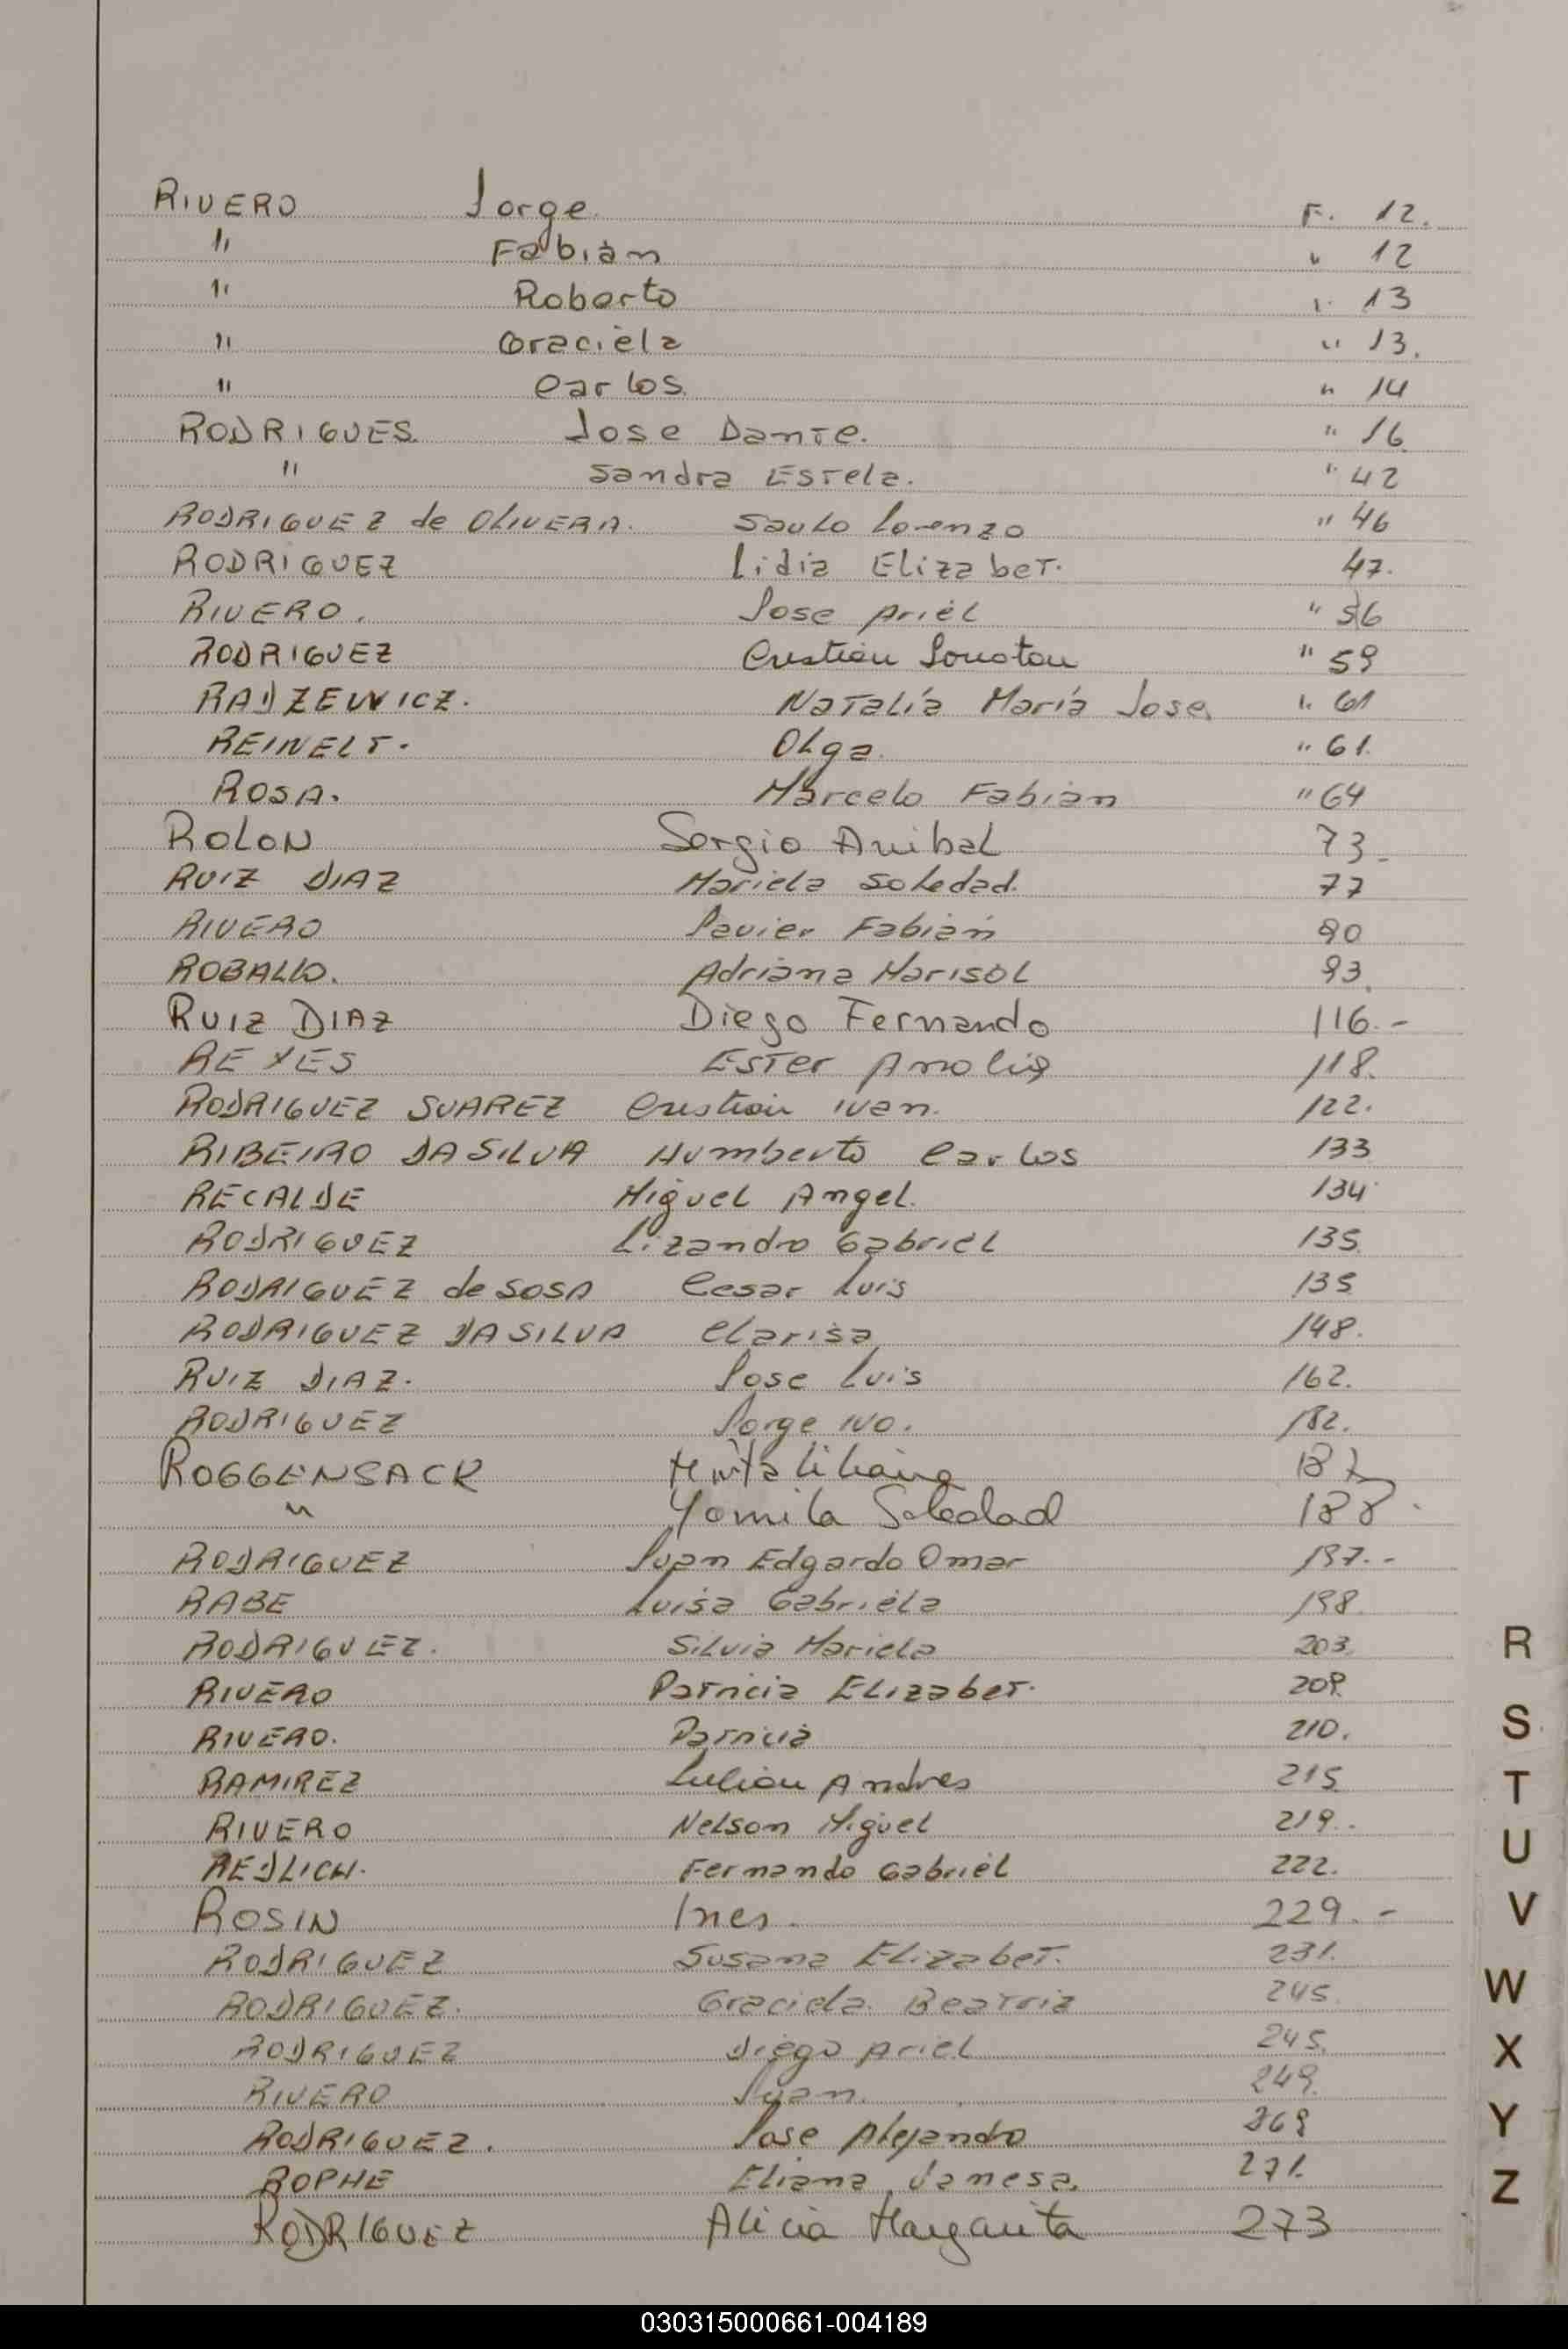 RIVERO Jorge. F. 12.
" Fabián " 12
" Roberto " 13
" Graciela " 13.
" Carlos. " 14
RODRIGUES. Jose Dante. " 16
" Sandra Estela. " 42
RODRIGUEZ de OLIVERA. Saulo Lorenzo " 46
RODRIGUEZ Lidia Elizabet. 47.
RIVERO. Jose Ariel " 56
RODRIGUEZ Cristian Jonatan " 59
RADZEWICZ. Natalia María Jose. " 61
REINELT. Olga. " 61.
ROSA. Marcelo Fabián " 64
ROLON Sergio Anibal 73.
RUIZ DIAZ Mariela Soledad. 77
RIVERO Javier Fabián 90
ROBALLO. Adriana Marisol 93.
RUIZ DIAZ Diego Fernando 116.-
REYES Ester Analia 118.
RODRIGUEZ SUAREZ Cristian Ivan. 122.
RIBEIRO DA SILVA Humberto Carlos 133
RECALDE Miguel Angel. 134
RODRIGUEZ Lizandro Gabriel 135.
RODRIGUEZ de SOSA Cesar Luis 135
RODRIGUEZ DA SILVA Clarisa 148.
RUIZ DIAZ. Jose Luis 162.
RODRIGUEZ Jorge Ivo. 182.
ROGGENSACK Liliana 187
" Yamila Soledad 188.
RODRIGUEZ Juan Edgardo Omar 197.-
RABE Luisa Gabriela 198.
RODRIGUEZ. Silvia Mariela 203.
RIVERO Patricia Elizabet. 209.
RIVERO. Patricia 210.
RAMIREZ Julian Andres 215.
RIVERO Nelson Miguel 219.
REDLICH. Fernando Gabriel 222.
ROSIN Ines. 229.-
RODRIGUEZ Susana Elizabet. 231.
RODRIGUEZ. Graciela Beatriz 245.
RODRIGUEZ Diego Ariel 245.
RIVERO Juan. 249.
RODRIGUEZ. Jose Alejandro 269
ROPHE Eliana Vanesa. 271.
RODRIGUEZ Alicia Margarita 273
R
S
T
U
V
W
X
Y
Z
030315000661-004189